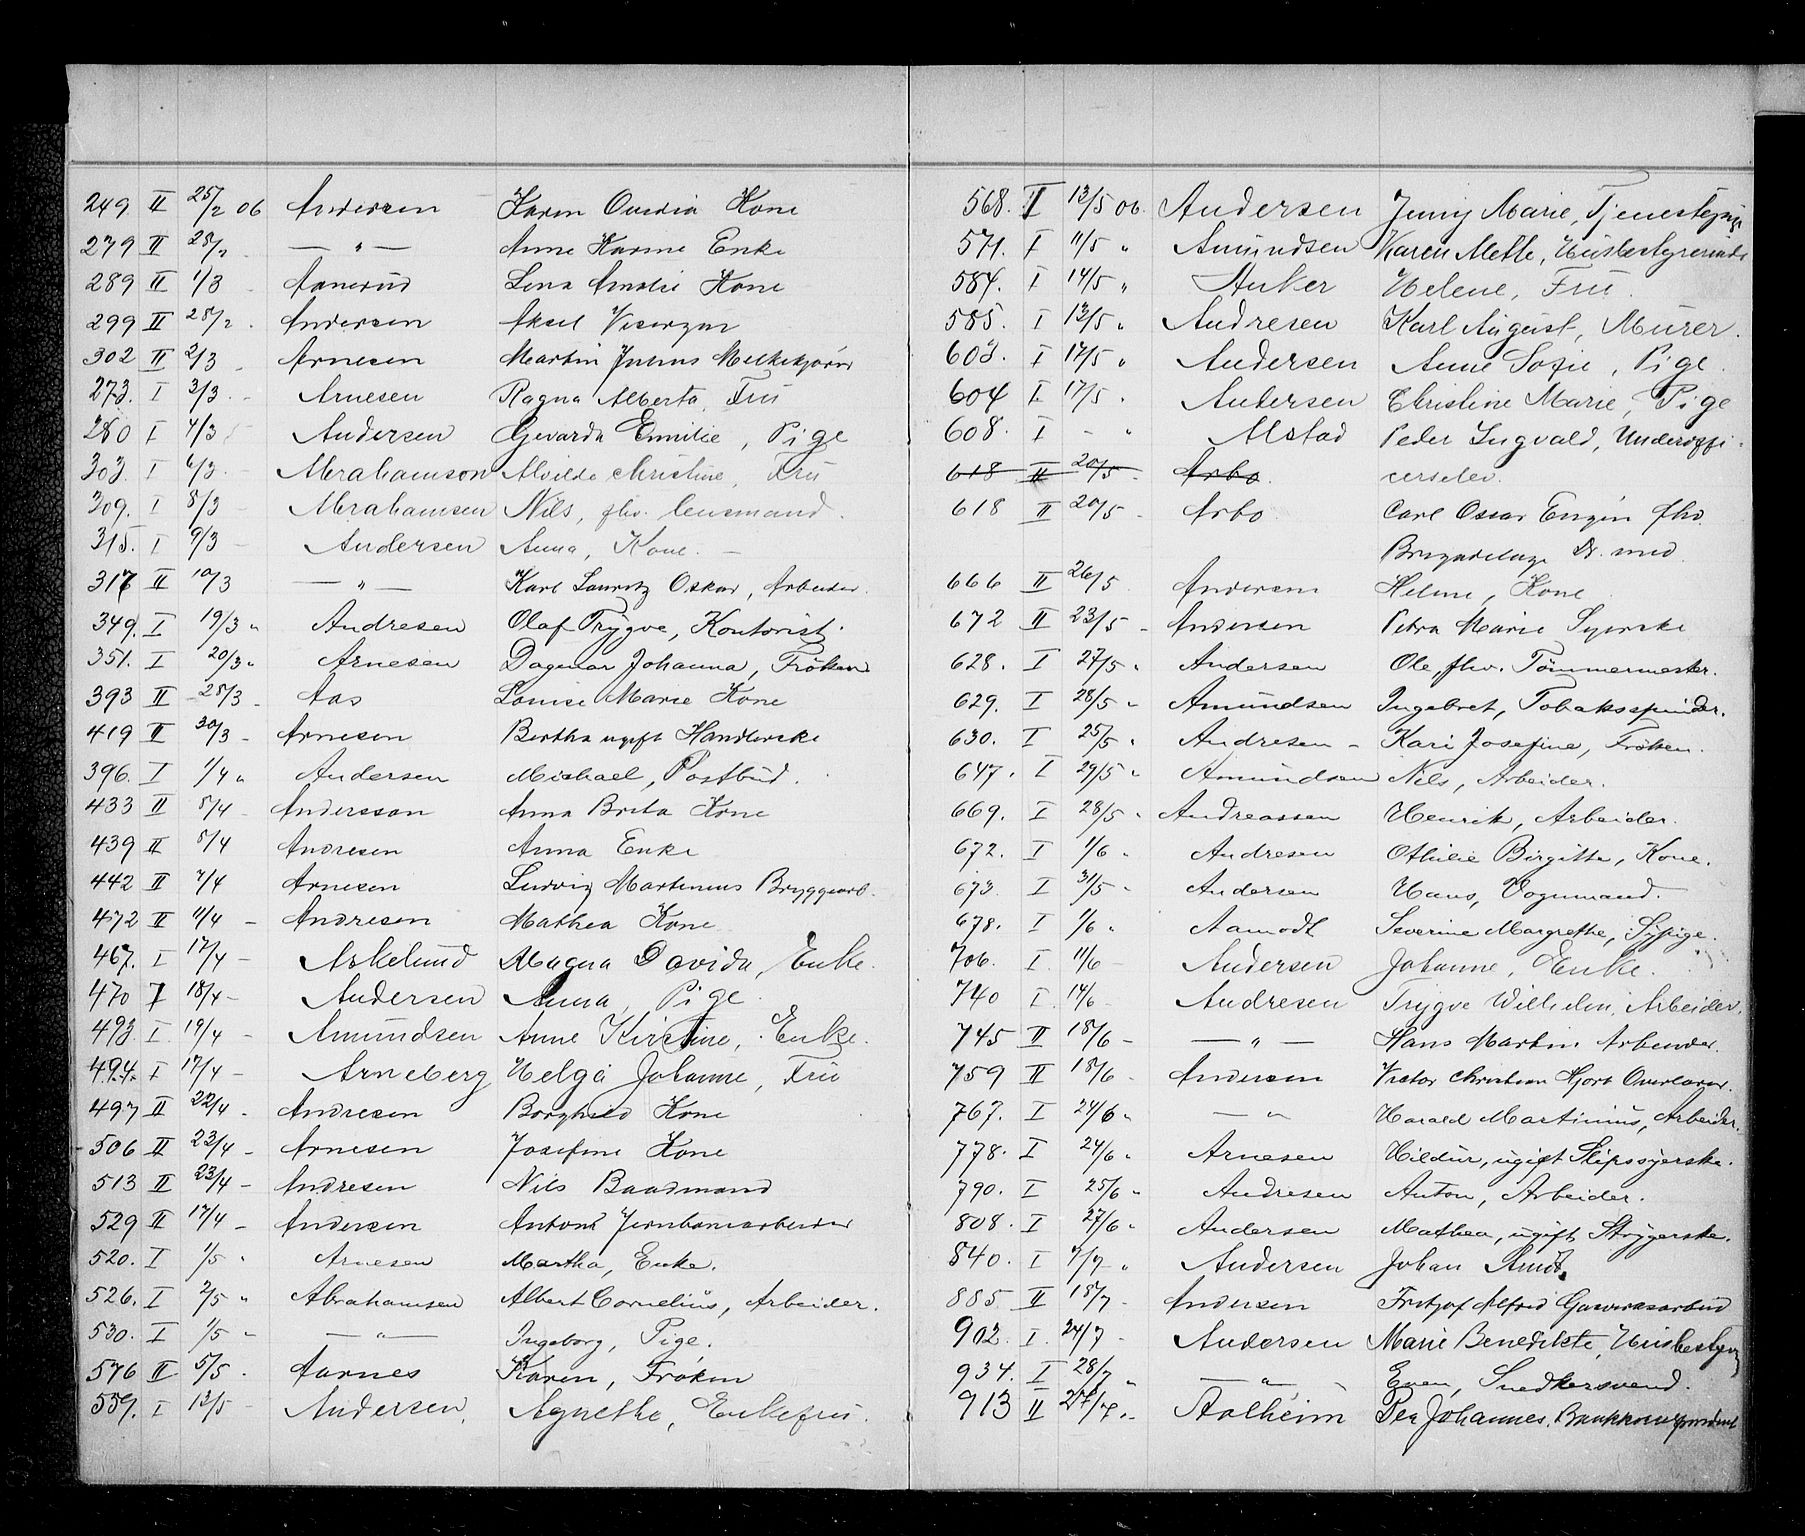 249 II 25/2 06 Andersen Karen Ovidia Kone
279 II 28/2 — " — Anne Karine Enke
289 II 1/3 Aanerud Lina Amalie Kone
299 II 28/2 Andersen Aksel Visergut
302 II 2/3 Arnesen Martin Julius Melkekjører
273. I 3/3 Arnesen Ragna Alberta, Frü
280 I 4/3 Andersen Gevarda Emilie, Pige
303. I 6/3 Abrahamson Alvilde Christine, Frü
309. I 8/3 Abrahamsen Nils, fhv. Lensmand.
315. I 9/3 Andersen Anna, Kone. —
317 II 10/3 — " — Karl Lauritz Oskar, Arbeider.
349. I 19/3 " Andresen Olaf Trygve, Kontorist.
351. I 20/3 " Arnesen Dagmar Johanna, Frøken
393 II 28/3 Aas Louise Marie Kone
419 II 30/3 Arnesen Bertha ugift Handlerske
396. I 1/4 " Andersen Michael, Postbüd.
433 II 5/4 Andersson Anna Brita Kone
439 II 5/4 Andresen Anna Enke
442 II 7/4 Arnesen Ludvig Martinius Bryggearb.
472 II 11/4 Andresen Mathea Kone
467. I 17/4 Askelund Magna Davida, Enke.
470 I 18/4 Andersen Anna, Pige.
493. I 19/4 Amündsen Anne Kirstine, Enke.
494. I 17/4 Arneberg Helga Johanne, Frü
497 II 22/4 Andresen Borghild Kone
506 II 23/4 Arnesen Josefine Kone
513 II 23/4 Andresen Nils Baadmand
529 II 17/4 Andersen Anton Jernbanearbeider
520. I 1/5 " Arnesen Martha, Enke.
526. I 2/5 " Abrahamsen Albert Cornelius, Arbeider.
530. I 1/5 " — " — Ingeborg, Pige.
576 II 5/5 Aarnes Karen, Frøken
559. I 13/5 Andersen, Agnethe, Enkefrü.
568. I 13/5 06. Andersen Jenny Marie, Tjenestepige
571. I 11/5 " Amundsen Karen Mette, Husbestyrerinde
584. I 14/5 " Anker Helene, Frü.
585. I 13/5 " Andresen Karl August, Mürer.
603. I 17/5 " Andersen Anne Sofie, Pige.
604 I. 17/5 " Andersen Christine Marie, Pige
608. I - " Alstad Peder Ingvald, Underoffi-
618 II 20/5 Arbo cerselev.
618 II 20/5 Arbo Carl Oscar Eugen fhv.
Brigadelæge Dr. med.
666 II 26/5 Andersen Helene, Kone
672 II 23/5 Andersen Petra Marie Syerske
628. I 27/5 " Andersen Ole, fhv. Tømmermester.
629. I 28/5 " Amundsen Ingebret, Tobaksspinder.
630. I 25/5 " Andresen - Kari Josefine, Frøken.
647. I 29/5 " Amundsen Nils, Arbeider.
669. I 28/5 " Andreassen Henrik, Arbeider.
672. I 1/6 " Andresen Othilie Birgitte, Kone.
673. I 31/5 " Andersen Hans, Vognmand.
678. I 1/6 " Aamodt Severine Margrethe, Sypige.
706. I 11/6 Andersen Johanne, Enke.
740 I. 14/6 Andresen Trygve Wilhelm, Arbeider.
745 II 18/6 — " — Hans Martin Arbeider.
759 II 18/6 Andersen Victor Christian Hjort Overlærer.
767. I 24/6 " — " — Harald Martinius, Arbeider.
778. I 24/6 " Arnesen Hildür, ugift Slipssyerske.
790. I 25/6 " Andresen Anton, Arbeider.
808. I 27/6 " Andersen Mathea, ugift Strygerske.
840. I 7/7 " Andersen Johan Arndt.
885 II 18/7 Andersen Fritjof Alfred Gasverksarbeid
902. I. 24/7 Andersen Marie Benedikte, Husbestyrer
934. I 28/7 " — " — Even, Snedkersvend.
913 II 24/7 Aalheim Per Johannes, Bankkorrespondent